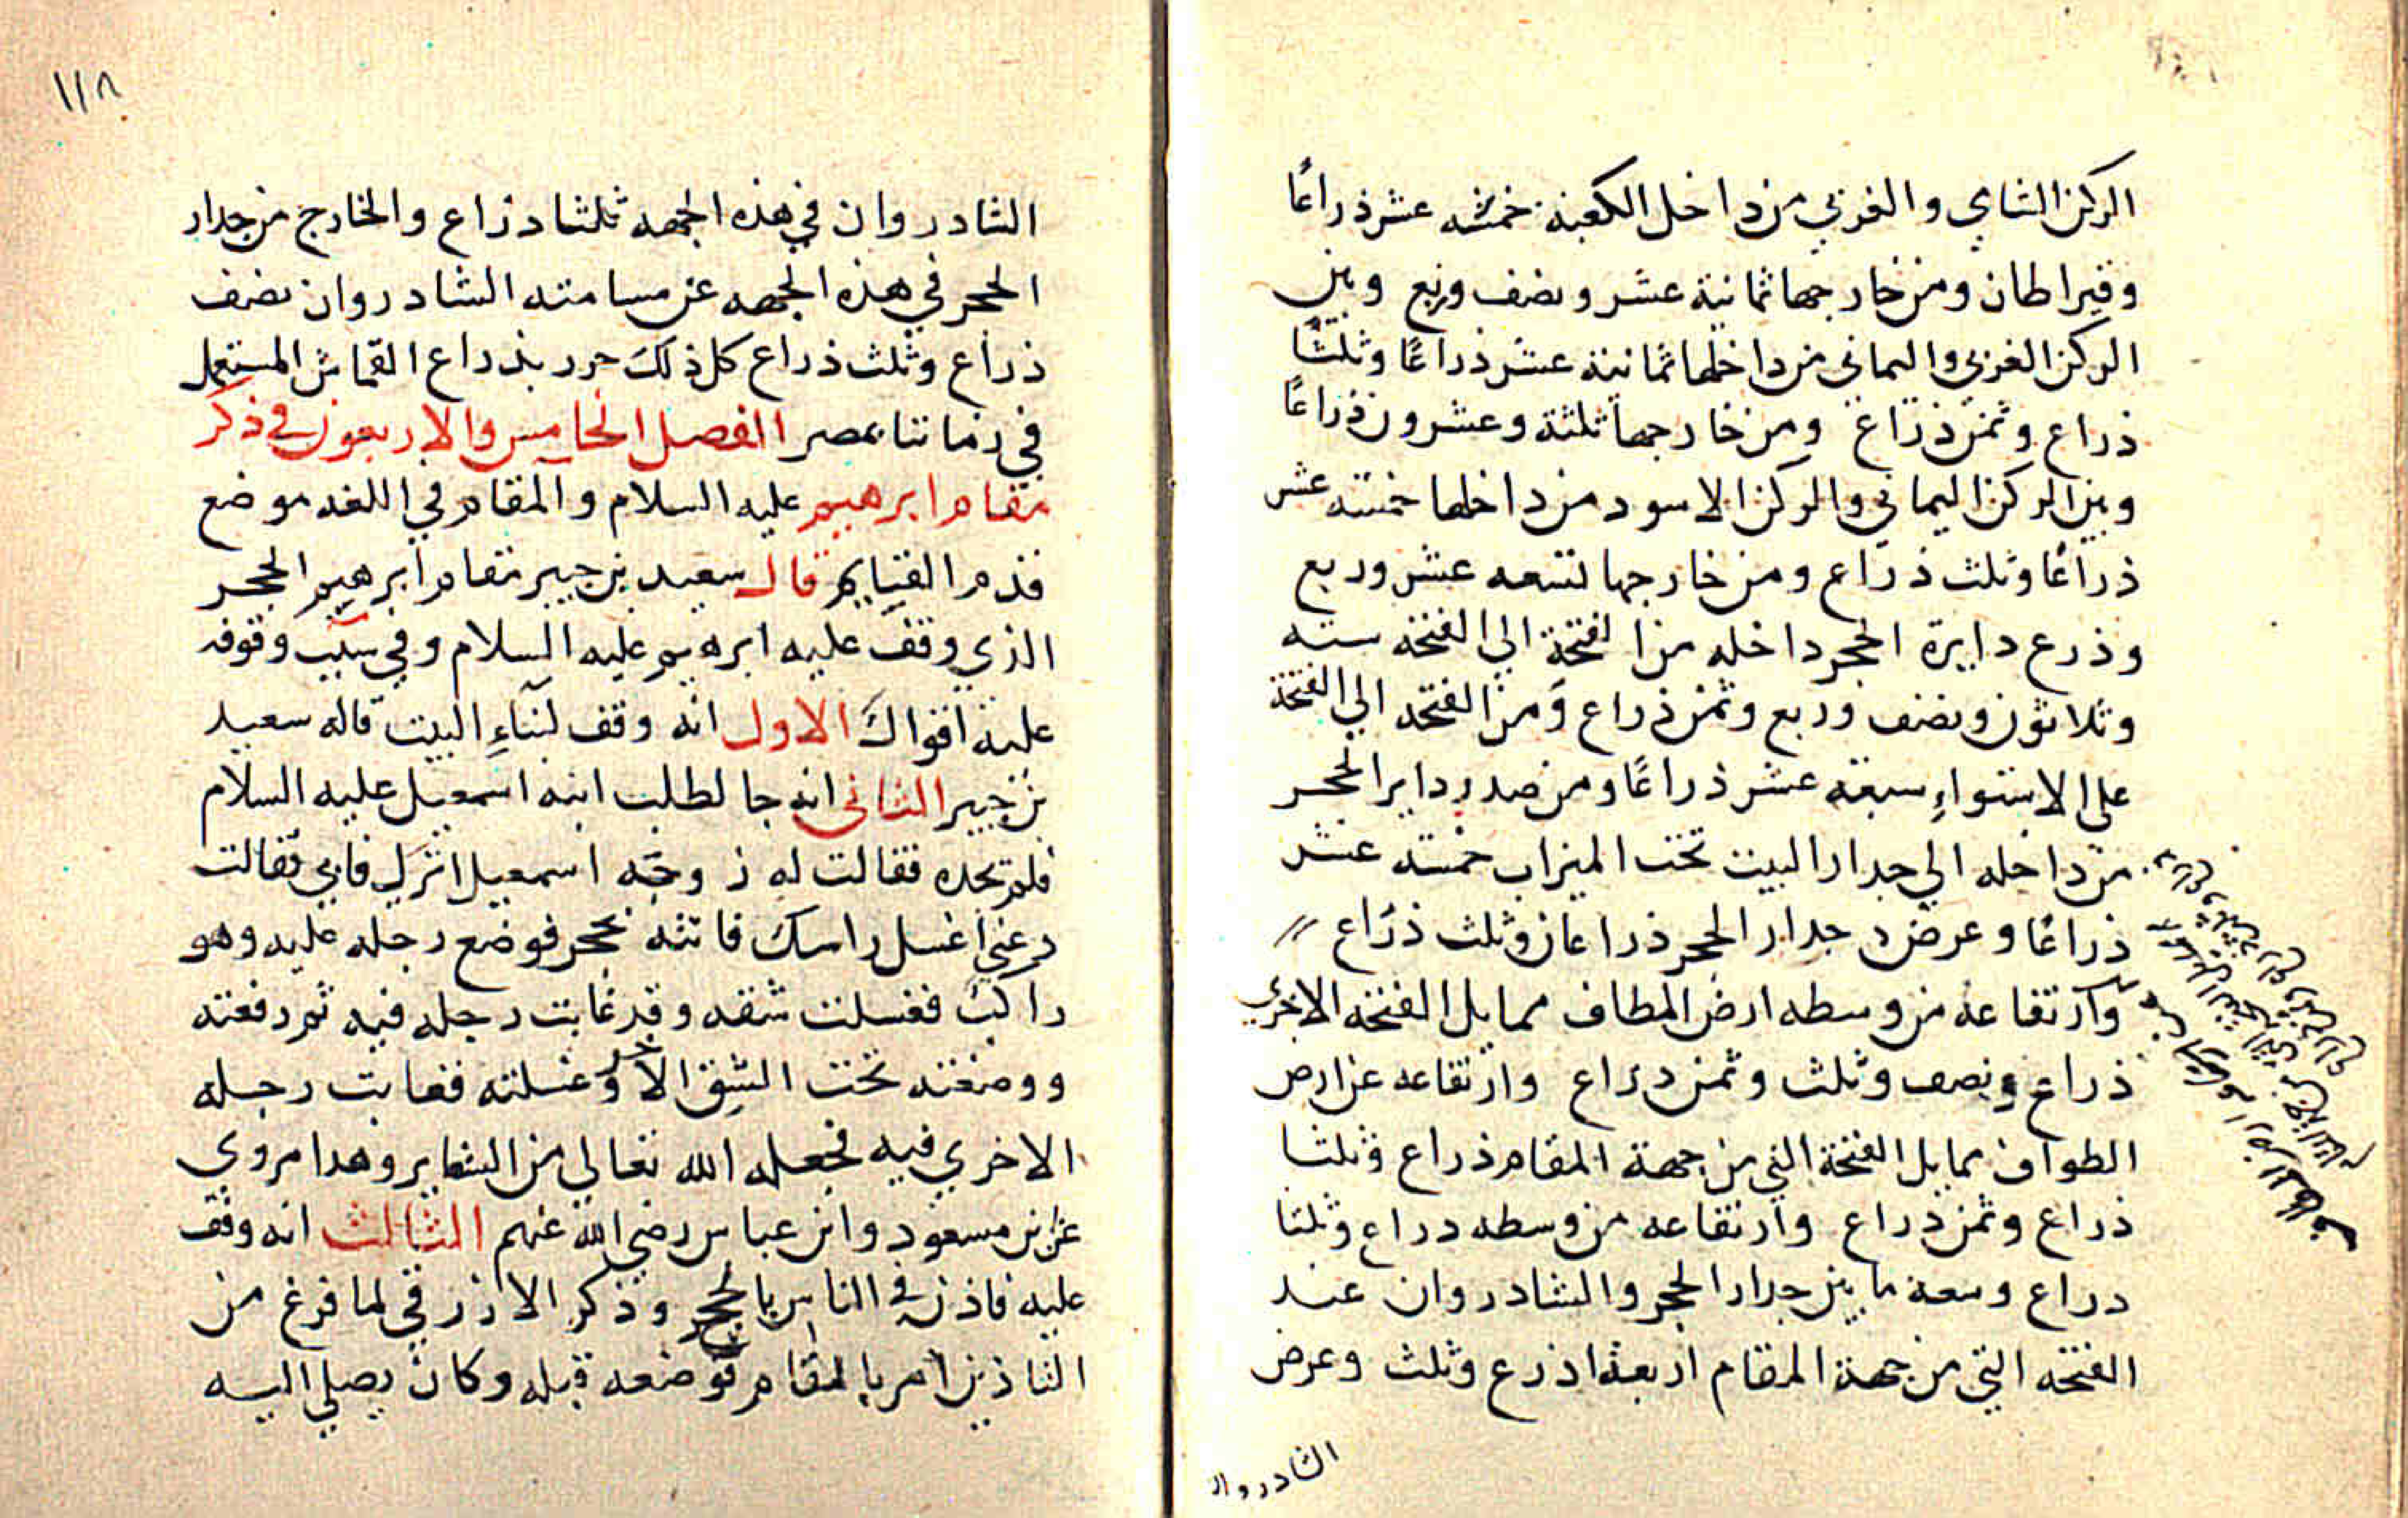 الركن الشامي والغربي من داخل الكعبة خمسة عشر ذراعًا
وقيراطان ومن خارجها ثمانية عشر ونصف وربع وبين
الركن الغربي واليماني من داخلها ثمانية عشر ذراعًا وثلثا
ذراع وثمن ذراع ومن خارجها ثلثة وعشرون ذراعًا
وبين الركن اليماني والركن الاسود من داخلها خمسة عشر
ذراعًا وثلث ذراع ومن خارجها تسعه عشر وربع
وذرع دايرة الحجر داخله من الفتحة الي الفتحة سته
وثلاثون ونصف وربع وثمن ذراع ومن الفتحه الي الفتحة
علي الاستواء سبعه عشر ذراعًا ومن صدر داير الحجر
من داخله الي جدار البيت تحت الميزاب خمسه عشر
ذراعًا وعرض جدار الحجر ذراعان وثلث ذراع
وارتفاعه من وسطه ارض المطاف مما يل الفتحه الاخري
ذراع ونصف وثلث وثمن دراع وارتفاعه عن ارض
الطواف مما يل الفتحة التي من جهة المقام ذراع وثلثا
ذراع وثمن دراع وارتفاعه من وسطه دراع وثلثا
دراع وسعة ما بين جدار الحجر والشادروان عند
الفتحه التي من جهة المقام اربعة اذرع وثلث وعرض
الشادروان
١١٨
الشادروان في هذه الجهه ثلثا ذراع والخارج من جدار
الحجر في هذه الجهه عن مسامته الشادروان نصف
ذراع وثلث ذراع كل ذلك حرر بذراع القماش المستعمل
في زماننا بمصر الفصل الخامس والاربعون في ذكر
مقام ابرهيم عليه السلام والمقام في اللغه موضع
قدم القيايم قال سعيد بن جبير مقام ابرهيم الحجر
الذي وقف عليه ابرهيم عليه السلام وفي سبب وقوفه
عليه اقوال الاول انه وقف لبناء البيت قاله سعيد
بن جبير الثاني انه جا لطلب ابنه اسمعيل عليه السلام
فلم يجده فقالت له زوجه اسمعيل انزل فابي فقالت
دعني اغسل راسك فاتته بحجر فوضع رجله عليه وهو
راكب فغسلت شقه وقد غابت رجله فيه ثم رفعته
ووضعته تحت الشق الاخر وغسلته فغابت رجله
الاخري فيه فجعله الله تعالي من الشعاير وهدا مروي
عن ابن مسعود وابن عباس رضي الله عنهم الثالث انه وقف
عليه فاذن في الناس بالحج وذكر الازرقي لما فرغ من
التاذين امر بالمقام فوضعه قبله وكان يصلي اليه